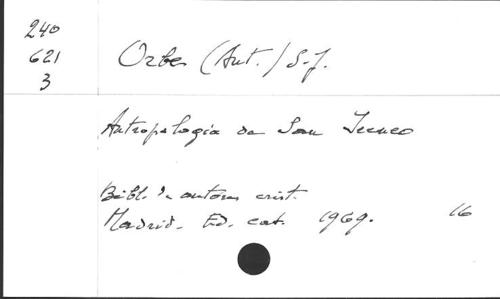 240
621
3
Orbe (Ant.) S.J.
Antropologia de San Ireneo
Bibl. de autores crist.
Madrid. Ed. cat. 1969. 16